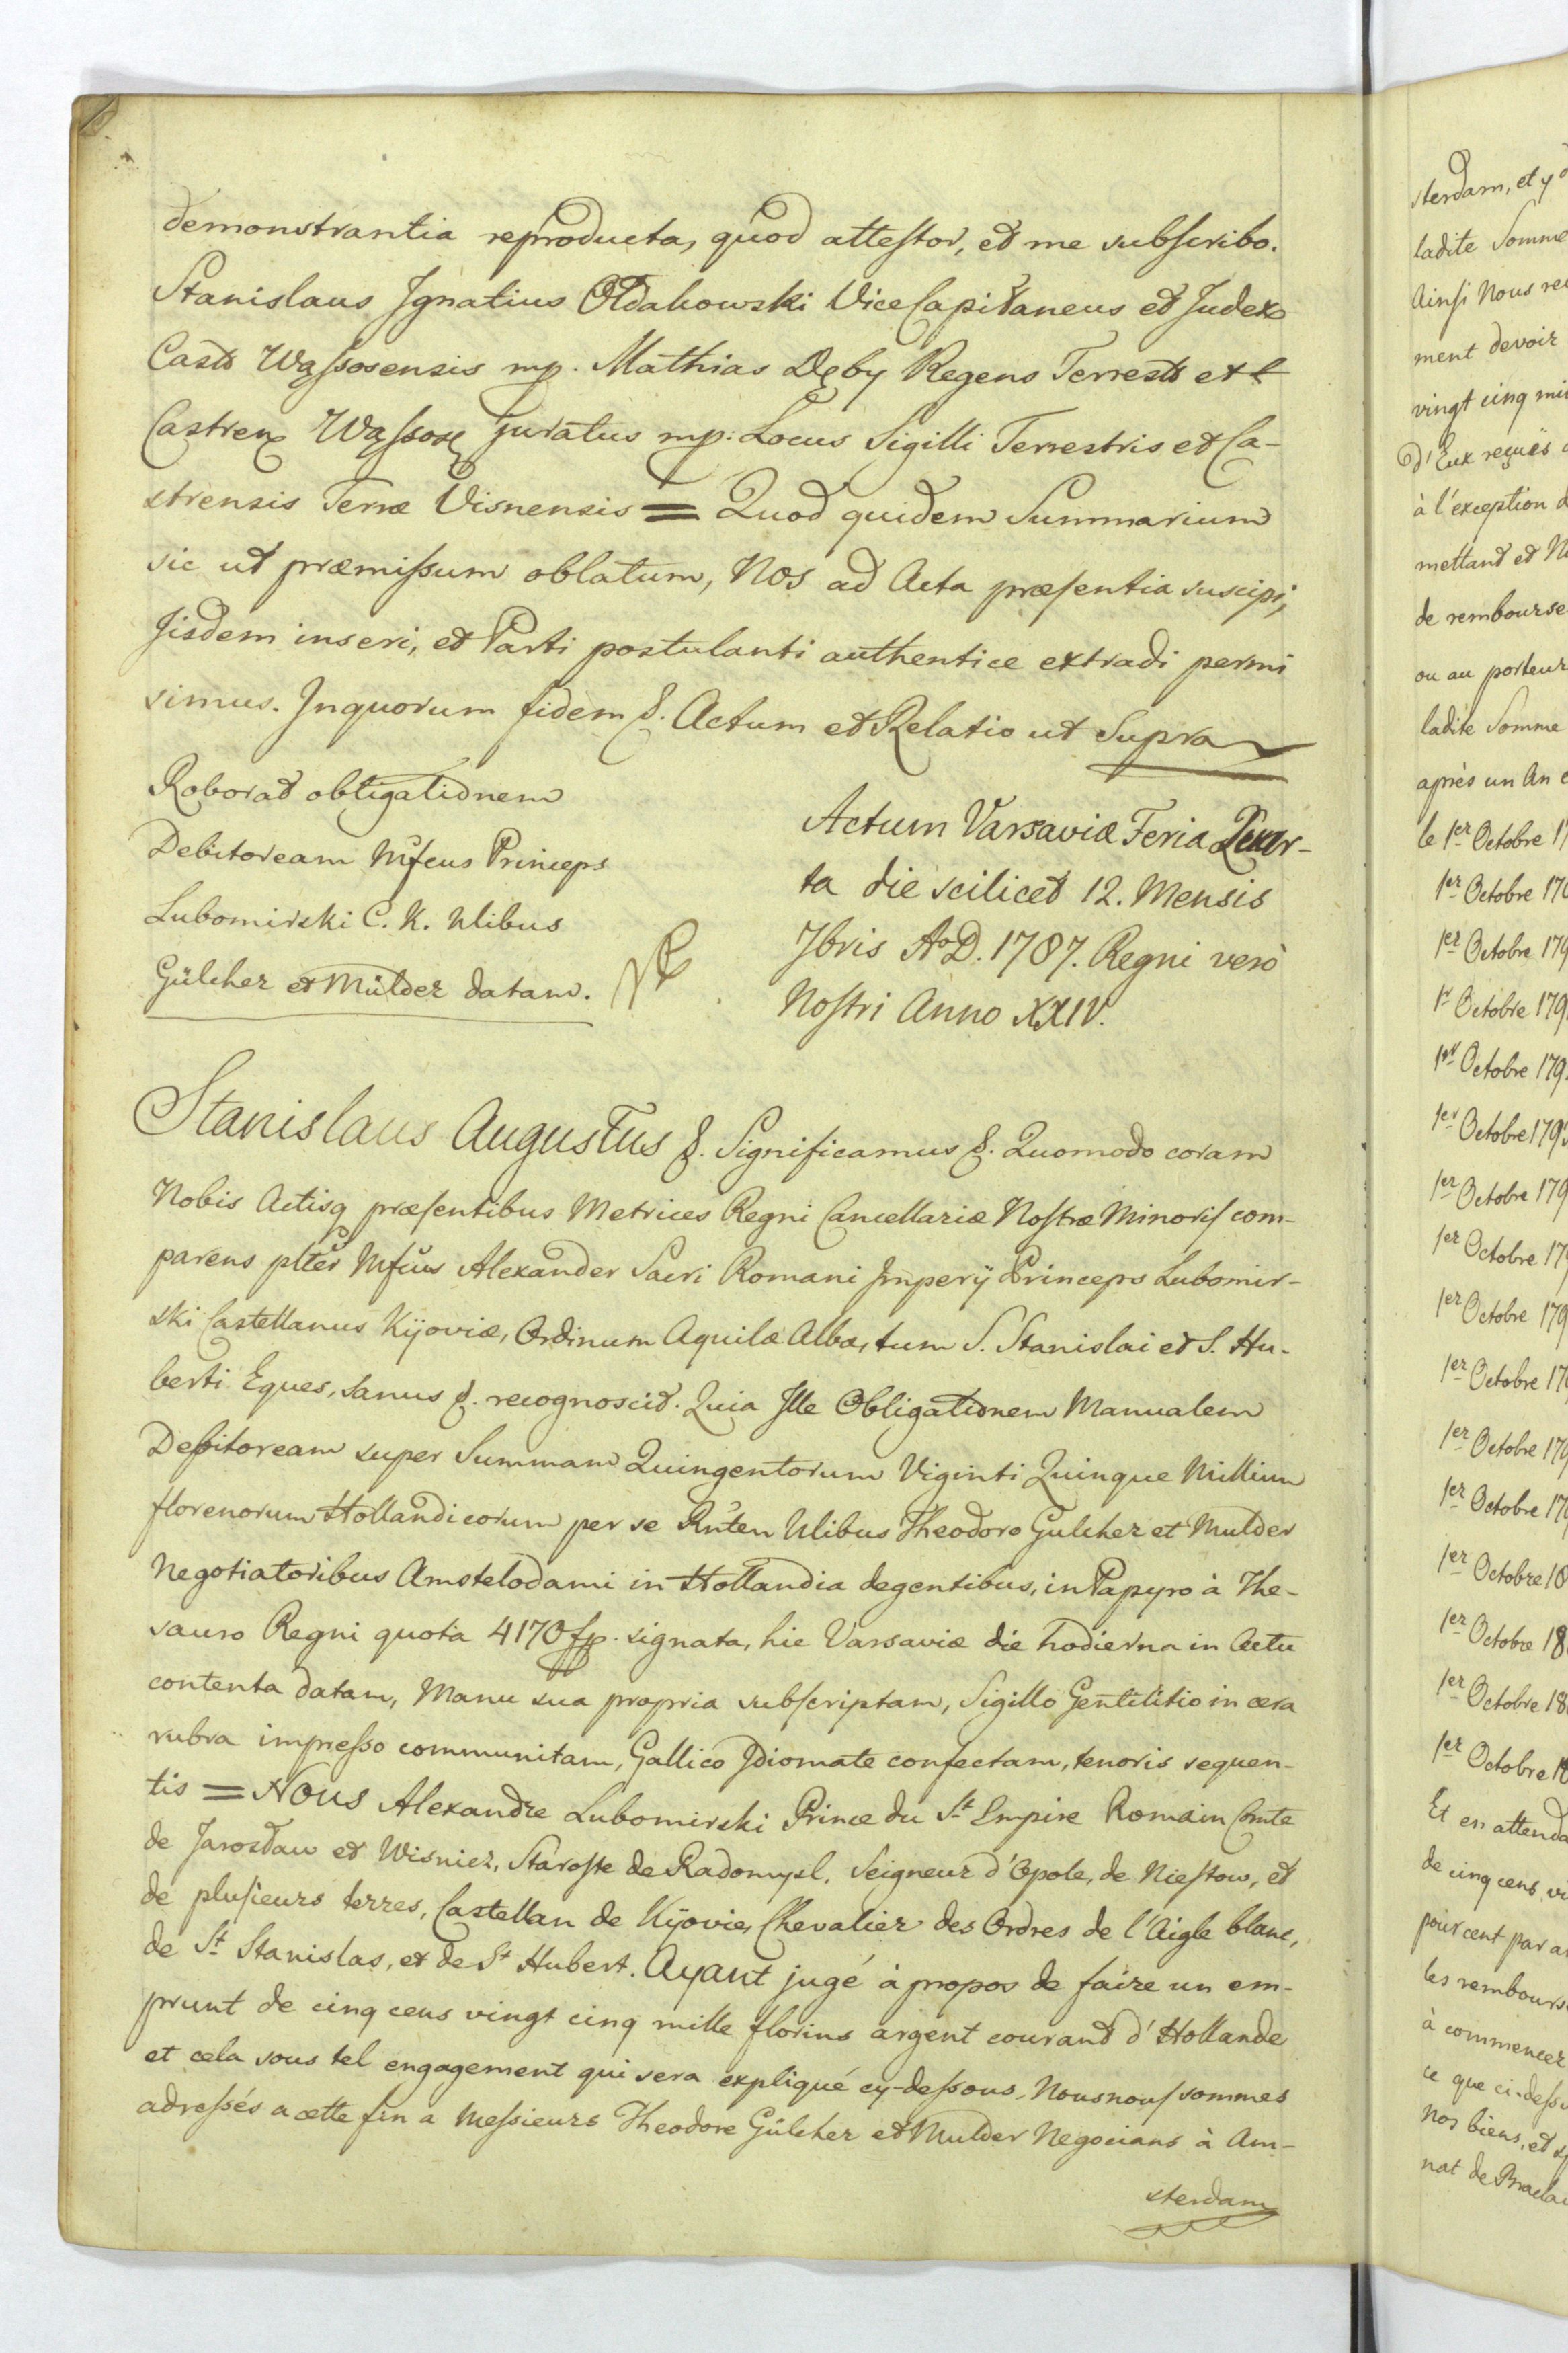 demonstrantia reproducta, quod attestor, et me subscribo.
Stanislaus Ignatius Ołdakowski ViceCapitaneus et Judex
Casts Wąssosensis mp. Mathias Dęby Regens Terrests et
Castren Wąssosz juratus mp: Locus Sigilli Terrestris et Ca-
strensis Terræ Visnensis = Quod quidem Summarium
sic ut præmissum oblatum, Nos ad Acta præsentia suscipi,
Jisdem inseri, et Parti postulanti authentice extradi permi
simus. Inquorum fidem &. Actum et Relatio ut Supra
Roborat obligationem
Debitoream Mfcus Princeps
Lubomirski C. K. Nlibus
Gülcher et Mülder datam.
Actum Varsaviæ Feria Quar-
ta die scilicet 12. Mensis
Jbris AoD. 1787. Regni verò
Nostri Anno XXIV.
Stanislaus Augustus &. Significamus &. Quomodo coram
Nobis Actisq præsentibus Metrices Regni Cancellariæ Nostræ Minoris com-
parens plter Mfcus Alexander Sacri Romani Imperÿ Princeps Lubomir-
ski Castellanus Kÿoviæ, Ordinum Aquilæ Albæ, tum S. Stanislai et S. Hu-
berti Eques, sanus &. recognoscit. Quia Ille Obligationem Manualem
Debitoream super Summam Quingentorum Viginti Quinque Millium
florenorum Hollandicorum per se Rnten Nlibus Theodoro Gulcher et Mulder
Negotiatoribus Amstelodami in Hollandia degentibus, in Papyro à The-
sauro Regni quota 4170 fp. signata, hic Varsaviæ die hodierna in Actu
contenta datam, Manu sua propria subscriptam, Sigillo Gentilitio in cera
rubra impresso communitam, Gallico Idiomate confectam, tenoris sequen-
tis = Nous Alexandre Lubomirski Prince du St Empire Romain Comte
de Jarosław et Wisnicz, Staroste de Radomysl. Seigneur d'Opole, de Niestow, et
de plusieurs terres, Castellan de Kÿovie, Chevalier des Ordres de l'Aigle blanc,
de St Stanislas, et de St Hubert. Ayant jugé à propos de faire un em-
prunt de cinq cens vingt cinq mille florins argent courant d'Hollande
et cela sous tel engagement qui sera expliqué cy-dessous, Nous nous sommes
adressés a cette fin a Messieurs Theodore Gülcher et Mulder Negocians à Am-
sterdam
sterdam, et y
ladite Somme
Ainsi Nous
ment devoir
vingt cinq
d'Eux reçues
à l'exception
mettant et
de rembourse
ou au porteur
ladite Somme
après un An
le 1er Octobre
1er Octobre
1er Octobre 179
1r Octobre 179
1er Octobre 179
1er Octobre 179
1er Octobre 179
1er Octobre 17
1er Octobre 179
1er Octobre 17
1er Octobre 179
1er Octobre 17
1er Octobre 18
1er Octobre 18
1er Octobre 18
1er Octobre
Et en attenda
de cinq cens
pour cent par
les rembours
à commencer
ce que ci-dess
Nos biens, et
nat de Bracla